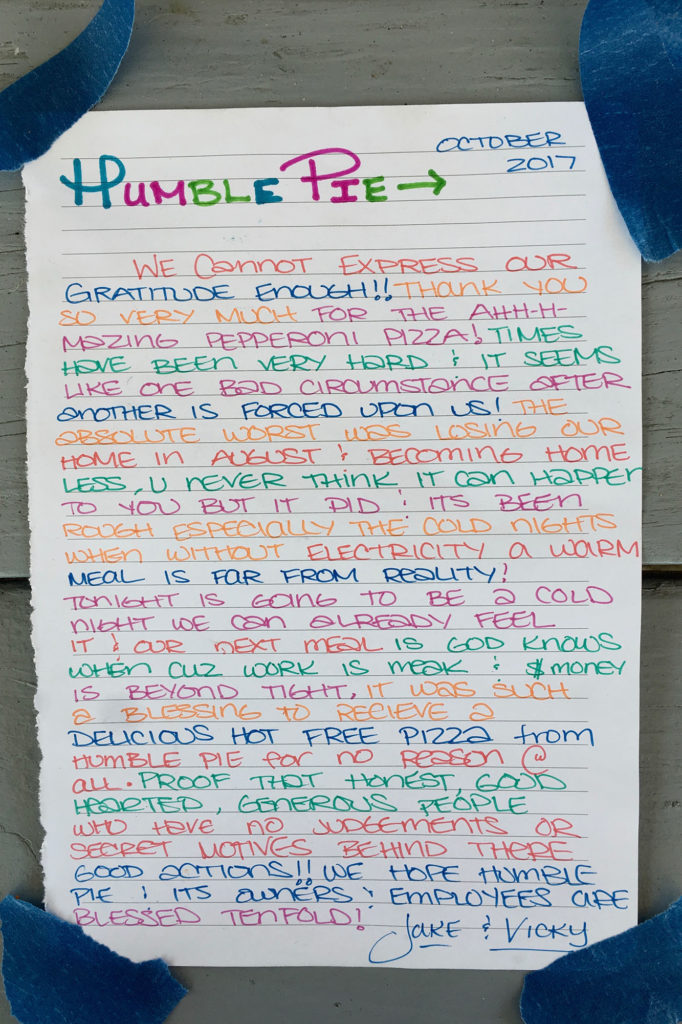 OCTOBER
2017
HUMBLE PIE →
WE CANNOT EXPRESS OUR
GRATITUDE ENOUGH!! THANK YOU
SO VERY MUCH FOR THE AHH-H-
MAZING PEPPERONI PIZZA! TIMES
HAVE BEEN VERY HARD & IT SEEMS
LIKE ONE BAD CIRCUMSTANCE AFTER
ANOTHER IS FORCED UPON US! THE
ABSOLUTE WORST WAS LOSING OUR
HOME IN AUGUST & BECOMING HOME
LESS, U NEVER THINK IT CAN HAPPEN
TO YOU BUT IT DID & ITS BEEN
ROUGH ESPECIALLY THE COLD NIGHTS
WHEN WITHOUT ELECTRICITY A WARM
MEAL IS FAR FROM REALITY!
TONIGHT IS GOING TO BE A COLD
NIGHT WE CAN ALREADY FEEL
IT & OUR NEXT MEAL IS GOD KNOWS
WHEN CUZ WORK IS MEAK & $MONEY
IS BEYOND TIGHT, IT WAS SUCH
A BLESSING TO RECIEVE A
DELICIOUS HOT FREE PIZZA from
HUMBLE PIE for NO REASON @
ALL. PROOF THAT HONEST, GOOD
HEARTED, GENEROUS PEOPLE
WHO HAVE NO JUDGEMENTS OR
SECRET MOTIVES BEHIND THERE
GOOD ACTIONS!! WE HOPE HUMBLE
PIE & ITS OWNERS & EMPLOYEES ARE
BLESSED TENFOLD! JAKE & VICKY